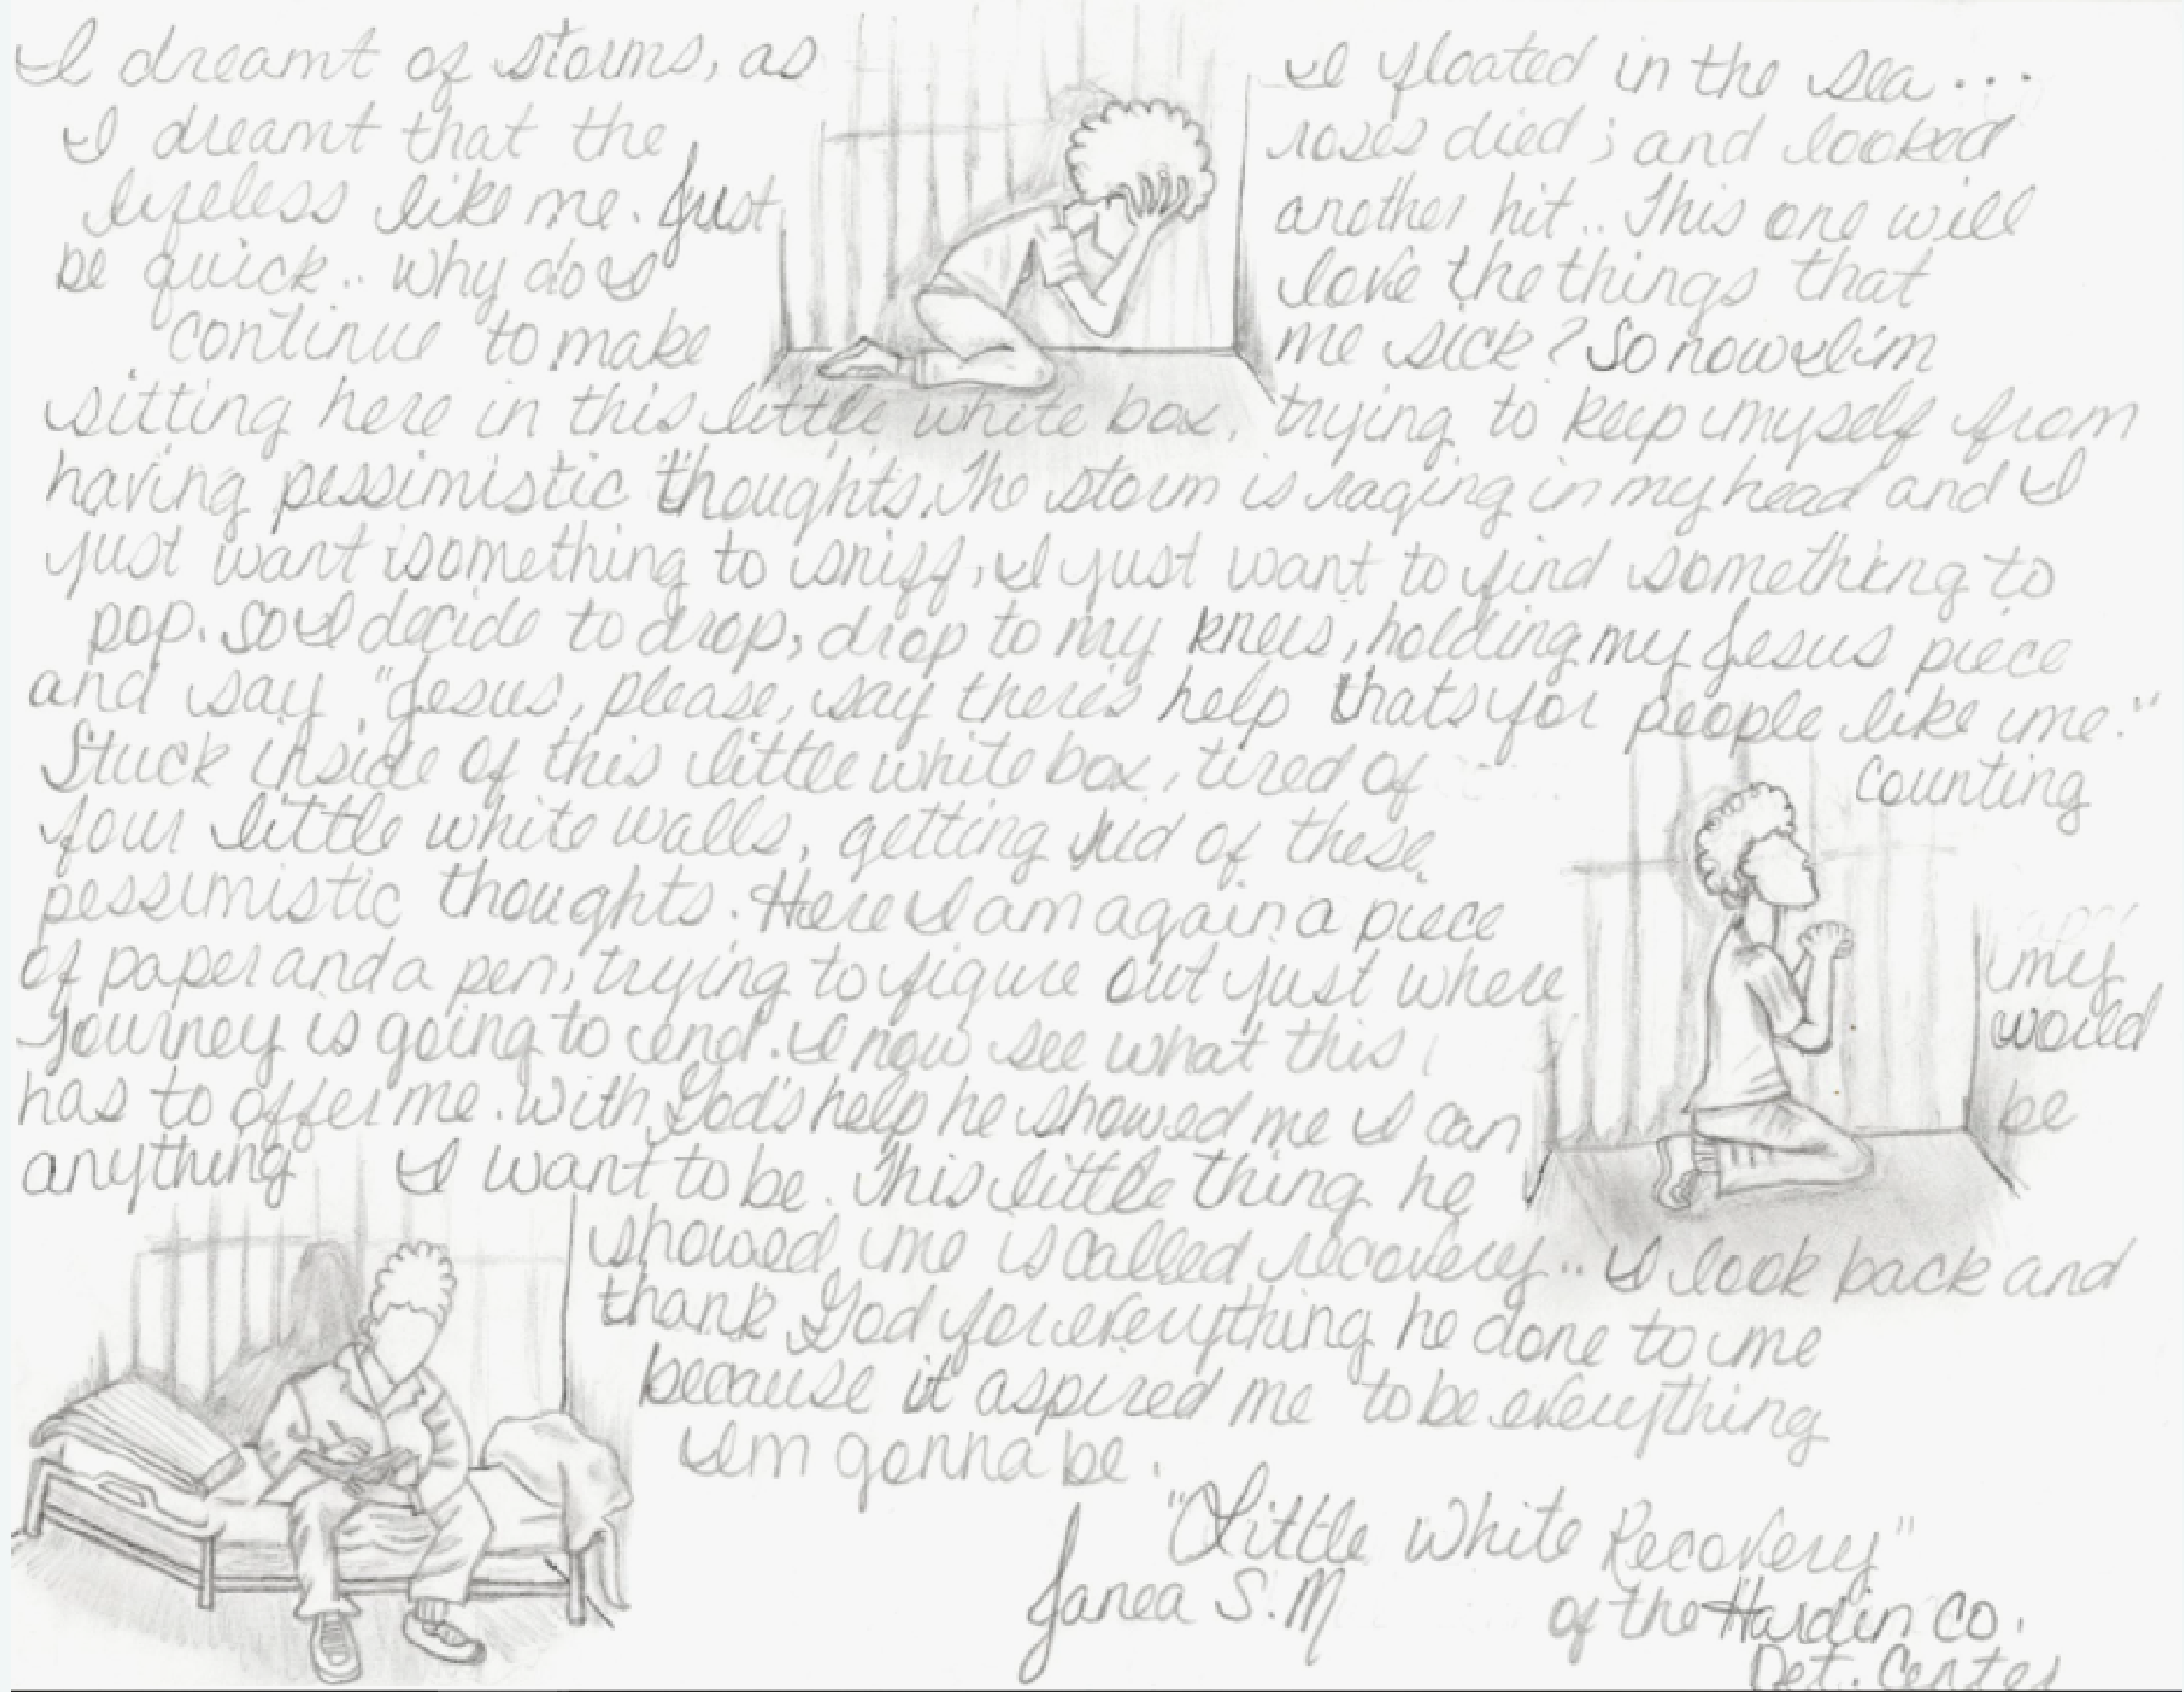 I dreamt of storms, as I floated in the sea...
I dreamt that the roses died; and looked
lifeless like me. Just another hit.. This one will
be quick.. why do I love the things that
continue to make me sick? So now I'm
sitting here in this little white box, trying to keep myself from
having pessimistic thoughts. The storm is raging in my head and I
just want something to sniff, I just want to find something to
pop. So I decide to drop, drop to my knees, holding my Jesus piece
and say "Jesus, please, say there's help thats for people like me."
Stuck inside of this little white box, tired of counting
four little white walls, getting rid of these
pessimistic thoughts. Here I am again a piece
of paper and a pen, trying to figure out just where my
Journey is going to end. I now see what this world
has to offer me. With God's help he showed me I can be
anything I want to be. This little thing he
showed me is called recovery.. I look back and
thank God for everything he done to me
because it aspired me to be everything
I'm gonna be.
"Little White Recovery"
Janea S.M of the Hardin Co.
Det. Center